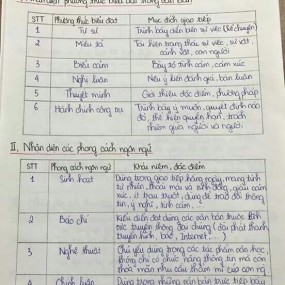 I, Nhận diện phương thức biểu đạt trong văn bản
STT Phương thức biểu đạt Mục đích giao tiếp
1 Tự sự Trình bày diễn biến sự việc (kể chuyện)
2 Miêu tả Tái hiện trạng thái sự việc, sự vật,
cảnh vật, con người
3 Biểu cảm Bày tỏ tình cảm, cảm xúc
4 Nghị luận Nêu ý kiến đánh giá, bàn luận
5 Thuyết minh Giới thiệu đặc điểm, phương pháp
6 Hành chính công vụ Trình bày ý muốn, quyết định nào
đó, thể hiện quyền hạn, trách
nhiệm giữa người và người.
II, Nhận diện các phong cách ngôn ngữ
STT Phong cách ngôn ngữ Khái niệm, đặc điểm
1 Sinh hoạt Dùng trong giao tiếp hằng ngày, mang tính
tự nhiên, thoải mái và sinh động, giàu cảm
xúc, ít trau chuốt, dùng để trao đổi thông
tin, ý nghĩ, tình cảm,...
2 Báo chí Kiểu diễn đạt dùng các văn bản thuộc lĩnh
vực truyền thông đại chúng (đài phát thanh
truyền hình, báo, Internet...)
3 Nghệ thuật Chủ yếu dùng trong các tác phẩm văn học,
không chỉ có chức năng thông tin mà còn
thỏa mãn nhu cầu thẩm mĩ của con ng
4 Chính luận Dùng trong những văn bản trực tiếp bày